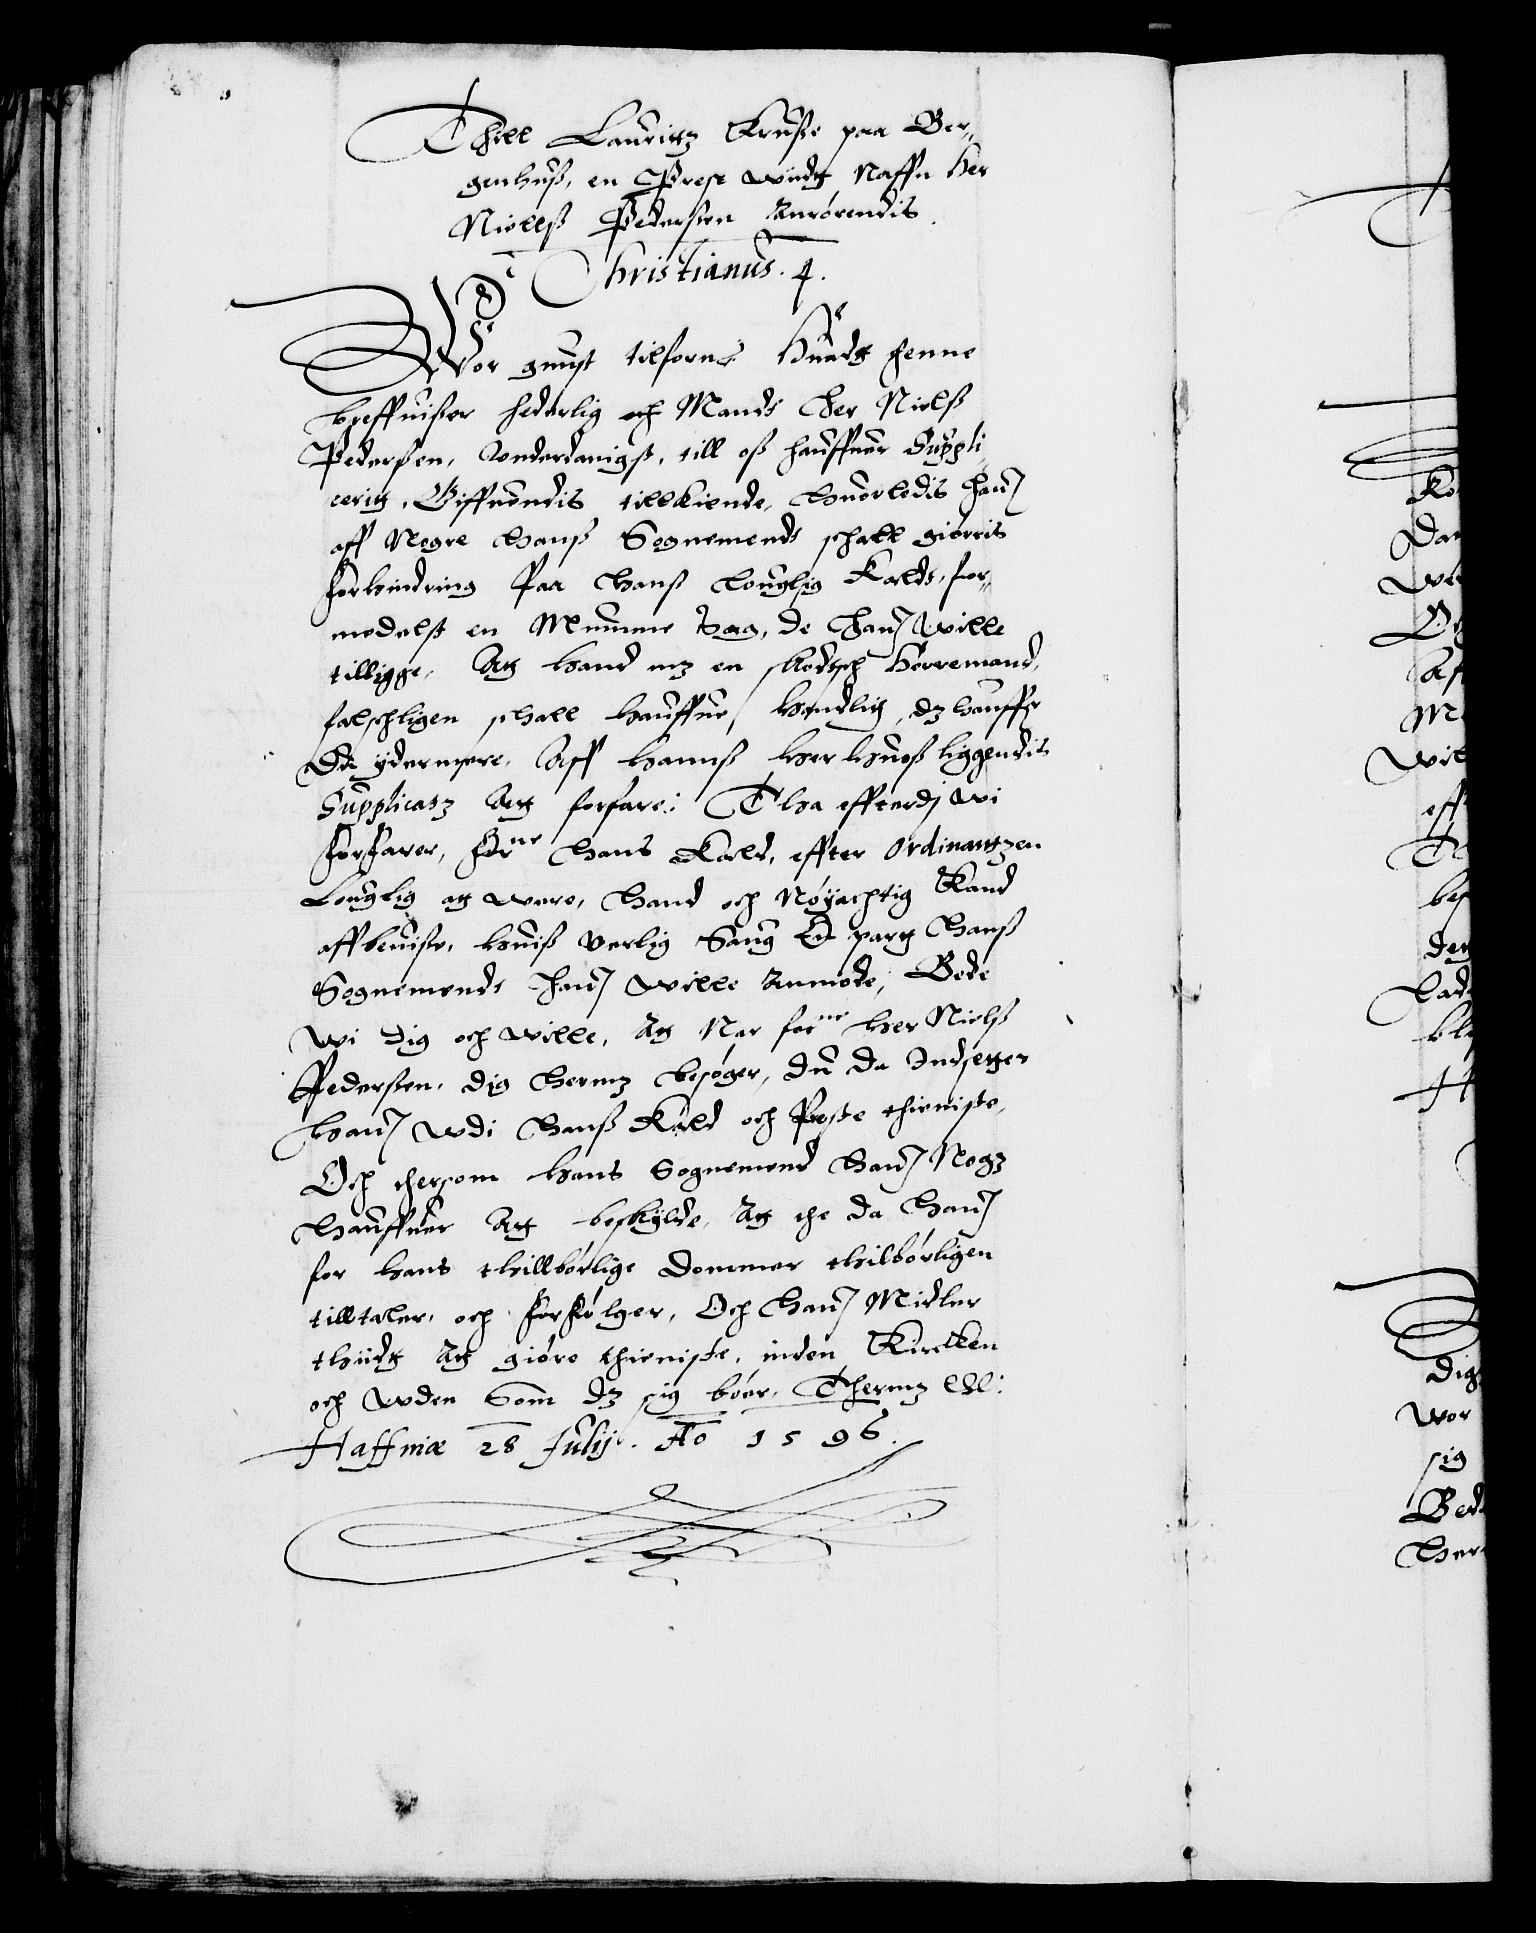 Thill Lauritz Kruße paa Ber,,
genhuß, en Prest widt Naffn Her
Niellß Pederßen Anrørendis.
Christianus. 4.
Wor gunst tilforne Huadt henne
breffuißer hederlig och Mands Her Nielß
Pederßen, Vnderdanigst, till oß hauffuer Suppli
cerit, Giffuendis tillkiende, huorledis hand
aff Nogre hanß Sognemends schall giørris
forhindring Paa hanß louglig Kalds, for,,
medelst en Mumme Sag, de hand wille
tillegge, At hand mz en skodtsch Hørremand,
falschligen schall hauffue handlit, dz hauffr
Du ydermere, Aff hanß her huoß liggendis
Supplicatz At forfare: Tha effterdj wi
forfarer, forne hans Kald, effter Ordinantzen
Louglig at were, hand och Nøyachtig Kand
affbeuiße, huiß Verlig Sang En part hanß
Sognemends hand wille Anmode, Bede
wi dig och wille, At Nar forne Her Nielß
Pederßen, dig hermz besøger, du da Indsetter
hand wdi hanß Kald och Preste thieniste,
Och ehersom hans Sognemend hand Nogz
hauffuer At beskylde, At the da hand
for hans thillbørlige Dommer thilbørligen
tilltaler, och forfølger, Och hand Midler
thiidt At giøre thieniste, inden Kircken
och wden Som dz sig bøer, Thermz
Haffniæ 28 Julij. Ao 1596.